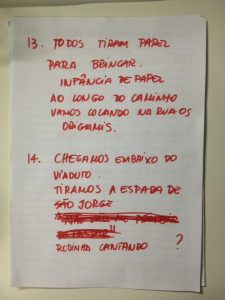 13. TODOS TIRAM PAPEL
PARA BRINCAR.
INFÂNCIA DE PAPEL
AO LONGO DO CAMINHO
VAMOS COLANDO NA RUA OS
ORIGAMIS.
14. CHEGAMOS EMBAIXO DO
VIADUTO.
TIRAMOS A ESPADA DE
SÃO JORGE
RODINHA CANTANDO ?